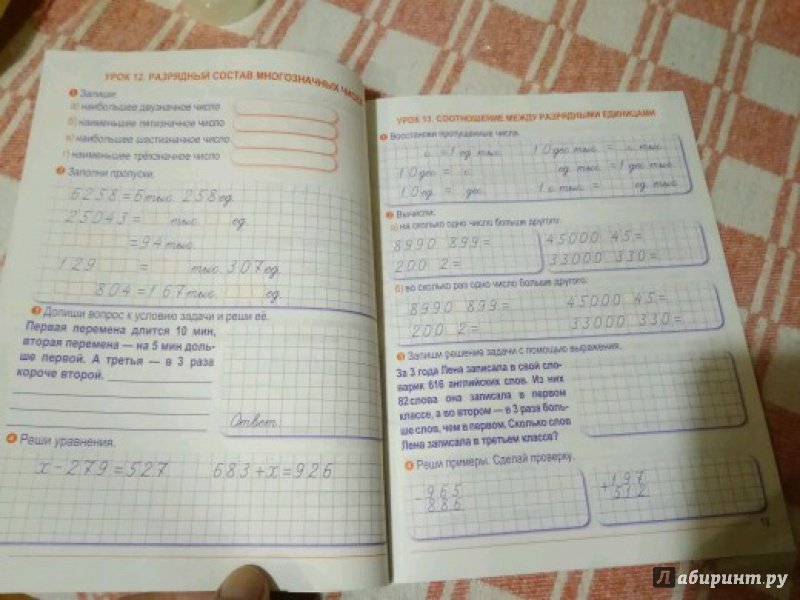 УРОК 12. РАЗРЯДНЫЙ СОСТАВ МНОГОЗНАЧНЫХ ЧИСЕЛ
1 Запиши:
а) наибольшее двузначное число
б) наименьшее пятизначное число
в) наибольшее шестизначное число
г) наименьшее трёхзначное число
2 Заполни пропуски.
6258 = 6 тыс. 258 ед.
25043 = тыс. ед.
= 94 тыс.
129 = тыс. 307 ед.
804 = 167 тыс. ед.
3 Допиши вопрос к условию задачи и реши её.
Первая перемена длится 10 мин,
вторая перемена — на 5 мин доль-
ше первой. А третья — в 3 раза
короче второй.
Ответ:
4 Реши уравнения.
x - 279 = 527 683 + x = 926
УРОК 13. СООТНОШЕНИЕ МЕЖДУ РАЗРЯДНЫМИ ЕДИНИЦАМИ
1 Восстанови пропущенные числа.
с. = 1 ед. тыс. 10 дес. тыс. = с. тыс.
10 дес. = с. ед. тыс. = 1 дес. тыс.
10 ед. = дес. 1 с. тыс. = ед. тыс.
2 Вычисли:
а) на сколько одно число больше другого:
8990 899 = 45000 45 =
200 2 = 33000 330 =
б) во сколько раз одно число больше другого:
8990 899 = 45000 45 =
200 2 = 33000 330 =
3 Запиши решение задачи с помощью выражения.
За 3 года Лена записала в свой сло-
варик 616 английских слов. Из них
82 слова она записала в первом
классе, а во втором — в 3 раза боль-
ше слов, чем в первом. Сколько слов
Лена записала в третьем классе?
4 Реши примеры. Сделай проверку.
- 965 + 197
886 512
13
Лабиринт.ру